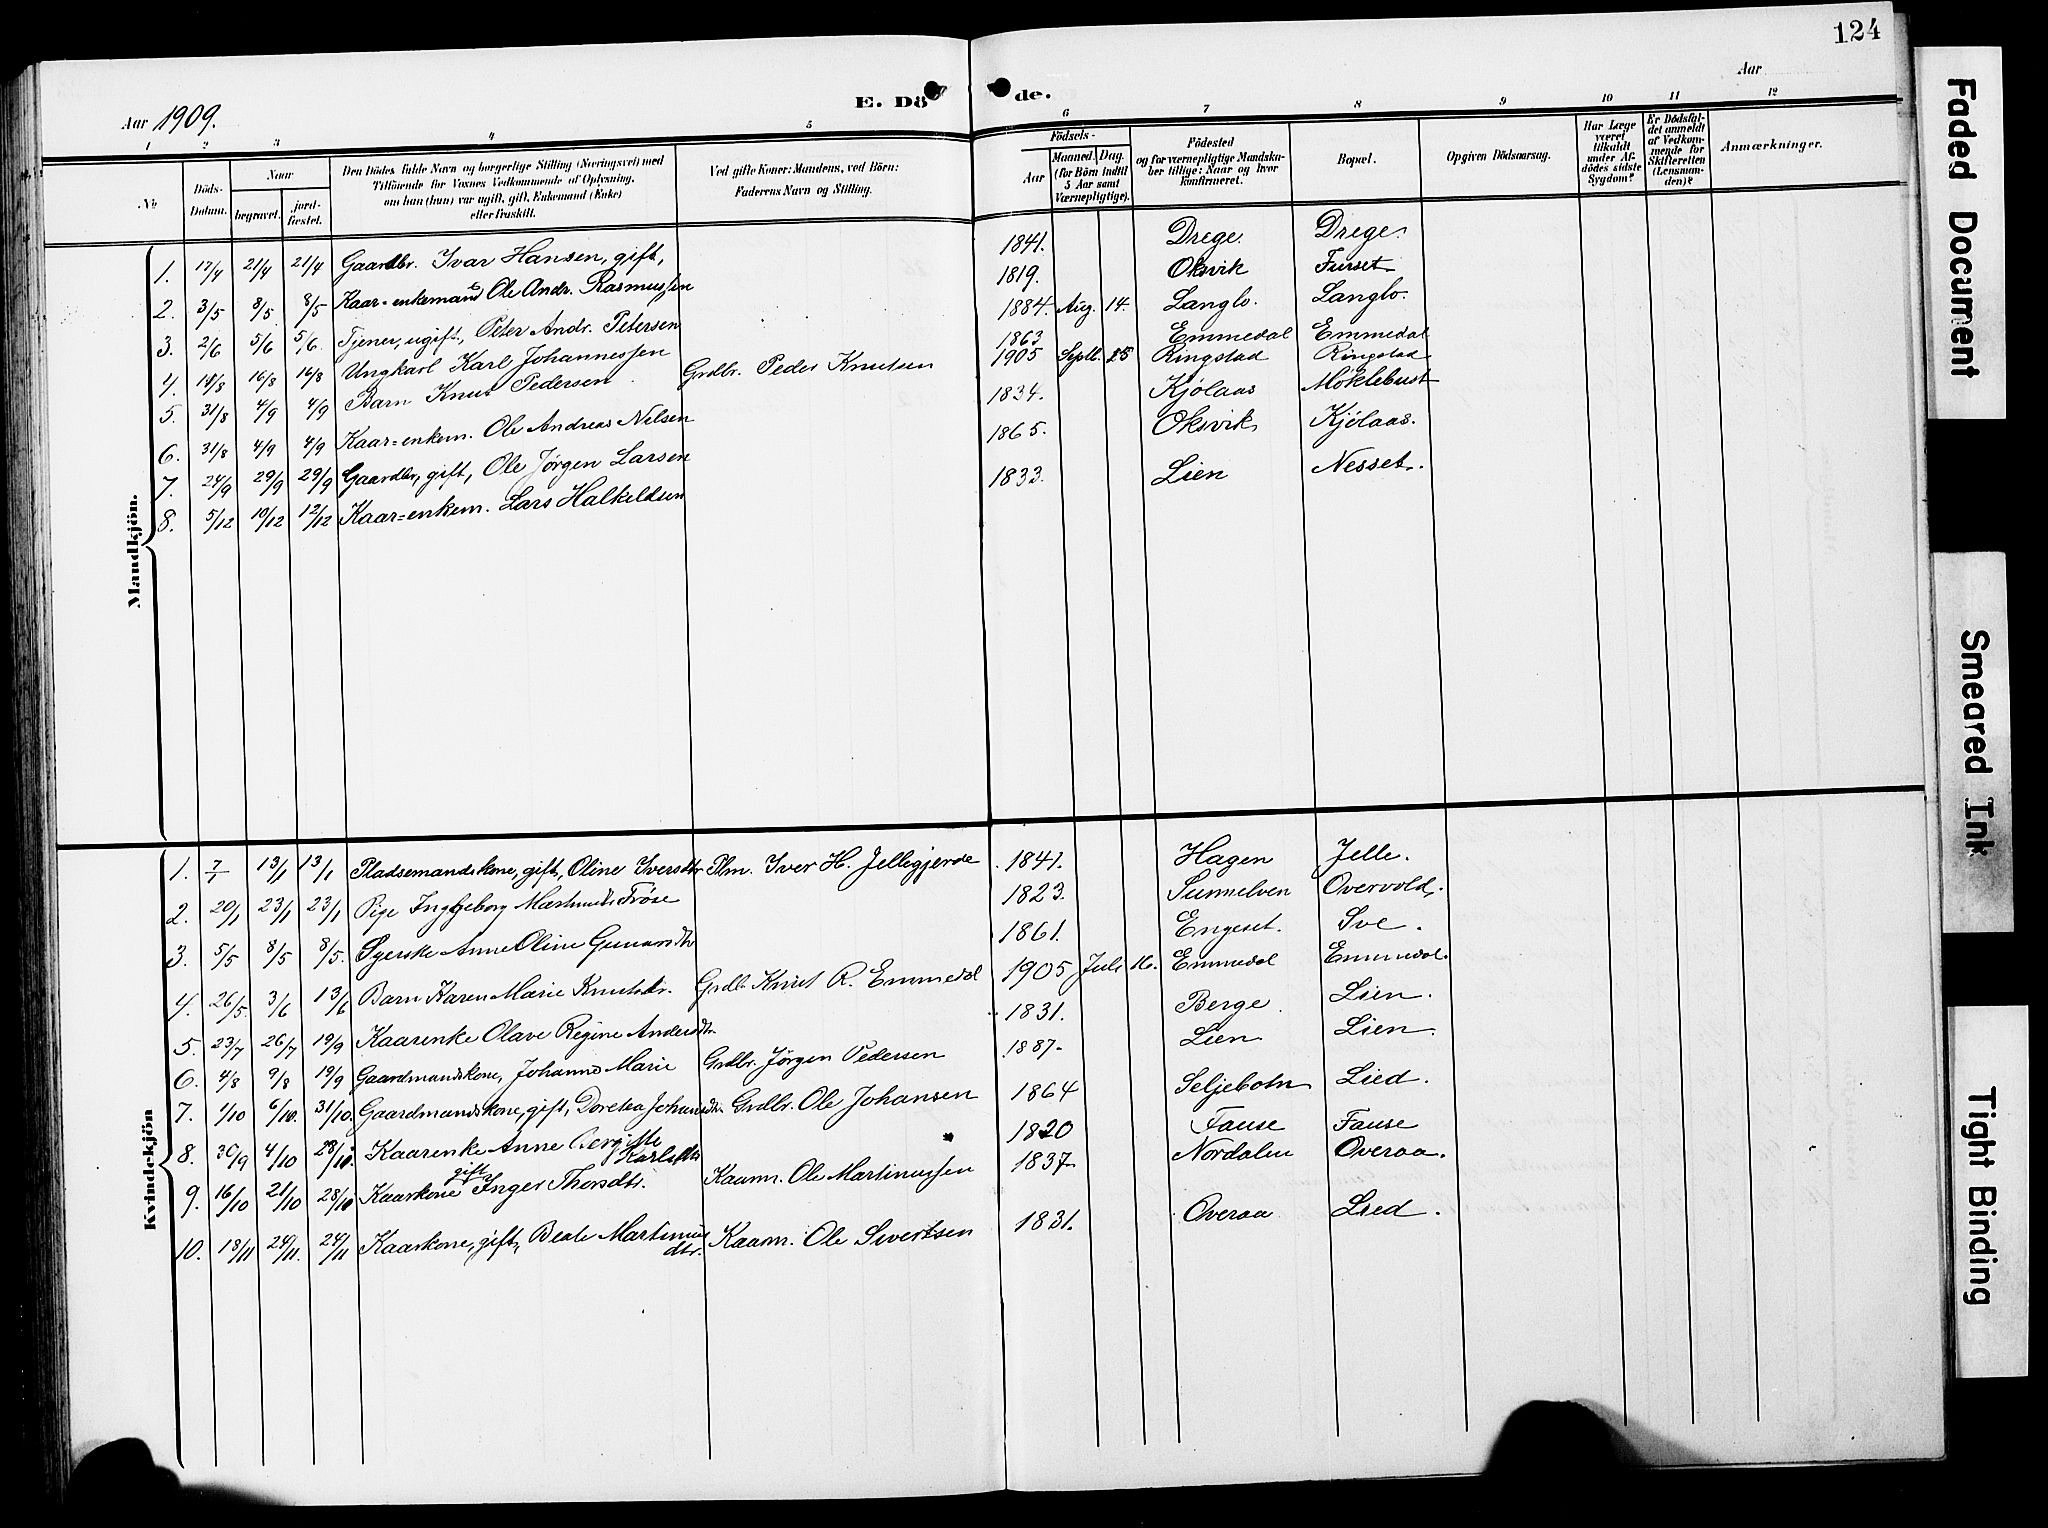 124
Aar 1909.
E. Dö de.
Aar
1 2 3 4 5 6 7 8 9 10 11 12
No
Döds-Datum.
Naar
begravet.
jord-fæstet.
Den Dödes fulde Navn og borgerlige Stilling (Næringsvei) med
Tilföiende for Voxnes Vedkommende af Oplysning,
om han (hun) var ugift, gift, Enkemand (Enke)
eller fraskilt.
Ved gifte Koner: Mandens, ved Börn:
Faderens Navn og Stilling.
Födsels-
Aar
Maaned. Dag.
(for Börn indtil
5 Aar samt
Værnepligtige).
Födested
og for værnepligtige Mandska-
ber tillige: Naar og hvor
konfirmeret.
Bopæl.
Opgiven Dödsaarsag.
Har Læge
været
tilkaldt
under Af-
dödes sidste
Sygdom?
Er Dödsfal-
det anmeldt
af Vedkom-
mende for
Skifteretten
(Lensman-
den)?
Anmærkninger.
Mandkjön.
1. 17/4 21/4 21/4 Gaardbr. Ivar Hansen, gift, 1841. Drege. Drege.
2. 3/5 8/5. 8/5 Kaar-enkemand Ole Andr. Rasmussen 1819. Oksvik Furset
3. 2/6 5/6 5/6. Tjener, ugift, Peter Andr. Petersen 1884. Aug. 14. Langlo. Langlo.
4. 10/8 16/8 16/8 Ungkarl Karl Johannessen 1863 Emmedal Emmedal
5. 31/8 4/9 4/9 Barn Knut Pedersen Grdbr. Peder Knutsen 1905 Septb. 25 Ringstad Ringstad
6. 31/8 4/9 4/9 Kaar=enkem. Ole Andreas Nilsen 1834. Kjölaas Möklebust
7. 24/9 29/9 29/9 Gaardbr, gift, Ole Jörgen Larsen 1865. Oksvik Kjölaas.
8. 5/12 10/12 12/12 Kaar=enkem. Lars Halkeldsen 1833. Lien Nesset.
Kvindekjön
1. 7/1 13/1 13/1 Pladsemandskone, gift, Oline Iversdtr Plm. Iver H. Jellegjerde 1841. Hagen Jelle.
2. 20/1 23/1 23/1 Pige Ingeborg Martinusd. Fröse 1823. Sunnelven Overvold.
3. 5/5 8/5 8/5. Syerske Anne Oline Gunarsdtr 1861. Engeset. Sve.
4. 26/5. 3/6 13/6 Barn Karen Marie Knutsdr. Grdb. Knut R. Emmedal 1905 Juli 16. Emmedal Emmedal.
5. 23/7 26/7 19/9 Kaarenke Olave Regine Andersdtr 1831. Berge. Lien.
6. 4/8 9/8 19/9 Gaardmandskone, Johanne Marie Grdbr. Jörgen Pedersen 1887. Lien Lien.
7. 1/10 6/10. 31/10. Gaardmandskone, gift, Dortea Johansdtr. Grdbr. Ole Johansen 1864 Seljebotn Lied.
8. 30/9 4/10 28/10. Kaarenke Anne Bergitte Karlsdtr 1820 Fause Fause
9. 16/10 21/10 28/10 Kaarkone gift Inger Thorsdtr. Kaarm. Ole Martinussen 1837 Nordalen Overaa.
10. 18/11 24/11. 24/11 Kaarkone, gift, Beate Martinus
dtr. Kaarm. Ole Sivertsen 1831. Overaa Lied.
Faded Document
Smeared Ink
Tight Binding